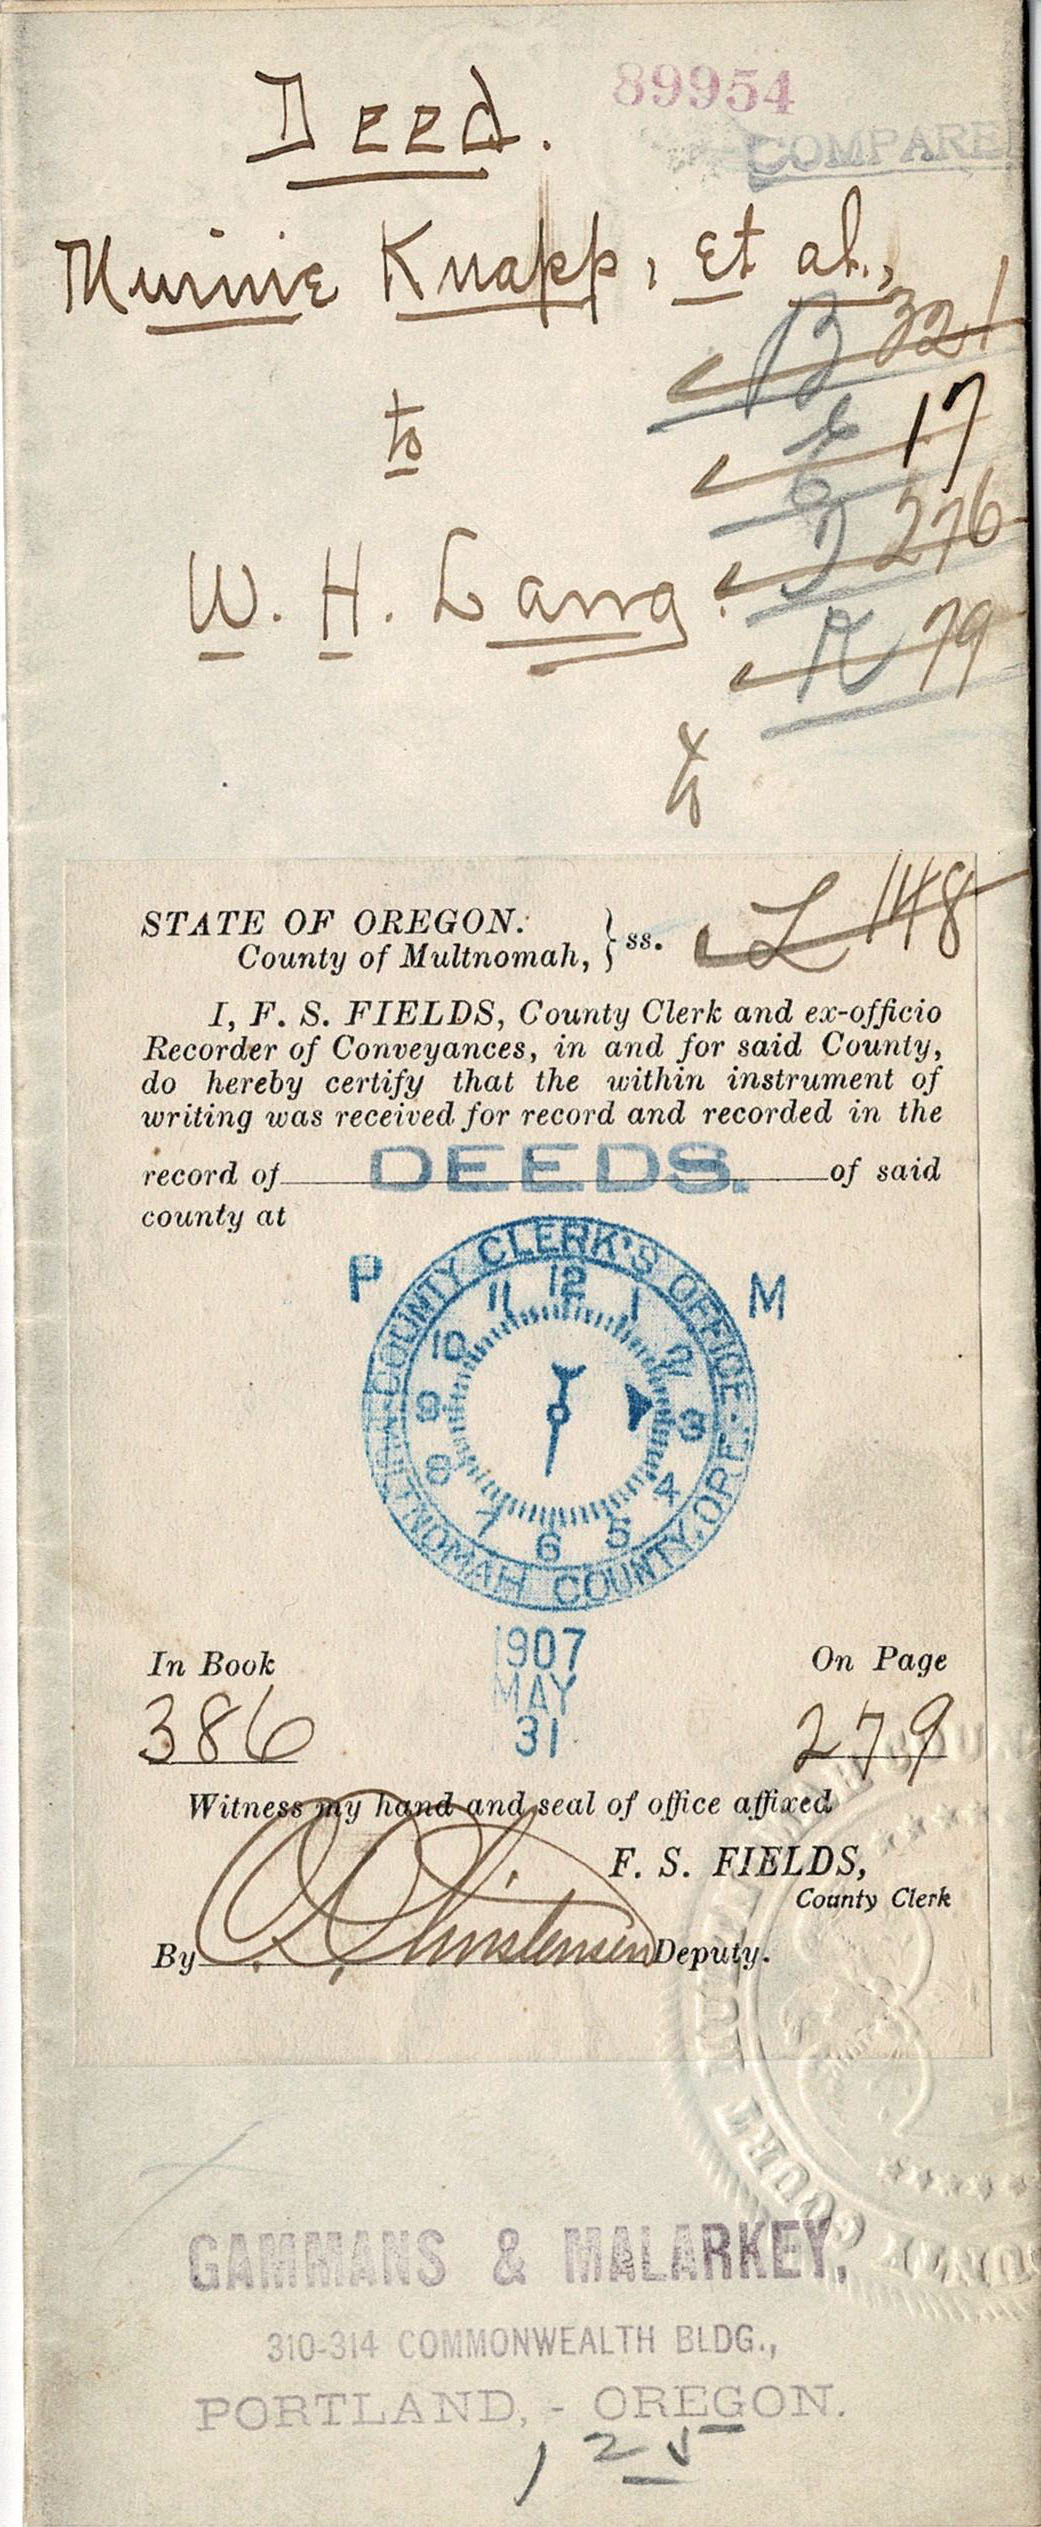 89954
COMPARED
Deed.
Minnie Knapp, Et al.,
B 321
to
17
D 276
W. H. Lang.
R 79
L 148
STATE OF OREGON.
County of Multnomah, } ss.
I, F. S. FIELDS, County Clerk and ex-officio
Recorder of Conveyances, in and for said County,
do hereby certify that the within instrument of
writing was received for record and recorded in the
record of DEEDS. of said
county at
P M
COUNTY CLERK'S OFFICE
12 1 2 3 4 5 6 7 8 9 10 11
MULTNOMAH COUNTY, ORE.
1907
MAY
31
In Book On Page
386 279
Witness my hand and seal of office affixed
F. S. FIELDS,
County Clerk
By Christensen Deputy.
COUNTY COURT MULTNOMAH COUNTY
GAMMANS & MALARKEY,
310-314 COMMONWEALTH BLDG.,
PORTLAND, - OREGON.
1 25